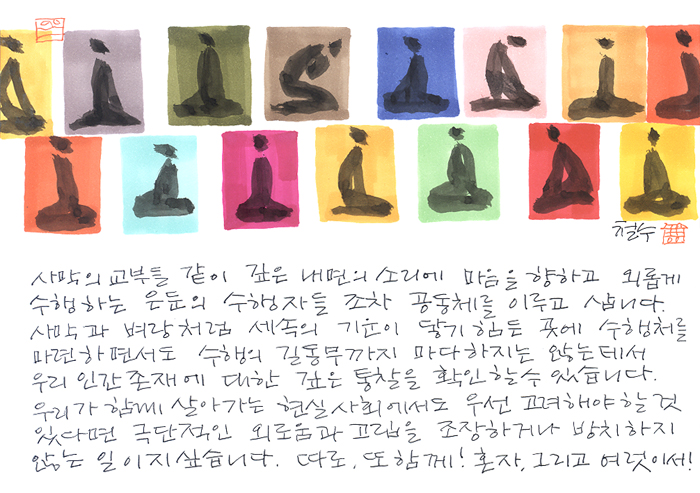 철수
사막의 교부들 같이 깊은 내면의 소리에 마음을 향하고 외롭게
수행하는 은둔의 수행자들 조차 공동체를 이루고 삽니다.
사막과 벼랑처럼 세속의 기운이 닿기 힘든 곳에 수행처를
마련하면서도 수행의 길동무까지 마다하지는 않는데서
우리 인간존재에 대한 깊은 통찰을 확인할 수 있습니다.
우리가 함께 살아가는 현실사회에서도 우선 고려해야 할 것
있다면 극단적인 외로움과 고립을 조장하거나 방치하지
않는 일이지 싶습니다. 따로, 또 함께! 혼자, 그리고 여럿이서!